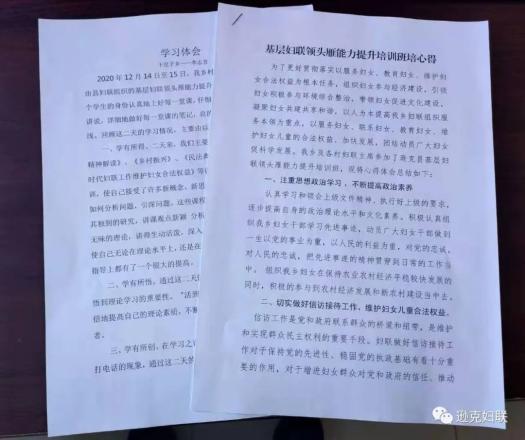 学习体会
2020 年 12 月 14 日至 15 日，我乡村
由县妇联组织的基层妇联领头雁能力提升
个学生的身份认真地上好每一堂课，仔细
讲说，详细地做好每一课的笔记，良的
线，回顾这二天的学习情况，主要由以
一、学有所得，二天来，我们主要
精神解读》、《乡村振兴》、《民法典
时代妇联工作维护妇女合法权益》等
训，使自己接受了许多新概念、新思
如何分析问题，引深问题，这些课教
其独到的研究，讲课观点新颖 分析
无味的理论，讲得生动活泼，深入
使自己无论在理论水平上，还是在
指导上都有了一个很大的提高。
二、学有所悟，通过这二天
悟到理论学习的重要性。“活到
倍地提高自己的理论素质，不断
者。
三、学有所创，在学习之
打电话的现象，通过这二天的
基层妇联领头雁能力提升培训班培心得
为了更好贯彻落实以服务妇女、教育妇女、维护妇
女合法权益为根本任务，组织妇女参与经济建设，引领
妇女积极参与环境综合整治，带领妇女促进文化建设，
凝聚妇女共建共享和谐，以人力本提高我乡妇联组织服
务本领为重点，以服务妇女、联系妇女、教育妇女、维
护妇女儿童的合法权益、加快发展，团结动员广大妇女
促科学发展。我乡及各村妇联主席参加了逊克县基层妇
联领头雁能力提升培训班，现将心得体会总结如下：
一、注重思想政治学习，不断提高政治素养
认真学习和领会上级文件精神，执行好上级的要求，
逐步提高自身的政治理论水平和文化素养。积极认真组
织我乡妇女干部学习先进事迹，动员广大妇女干部做到
一生以党的事业为重，以人民的利益为重，对党的忠诚，
对人民的忠诚，把先进事迹的精神贯穿到日常的工作当
中。 组织我乡妇女在保持农业农村经济平稳较快发展的
同时，积极的参与到农村经济发展和新农村建设当中去。
二、切实做好信访接待工作、维护妇女儿童合法权益。
信访工作是党和政府联系群众的桥梁和纽带，是维护
和实现群众民主权利的重要手段。妇联做好信访接待工
作对于保持党的先进性、稳固党的执政基础有着十分重
要的作用，对于增进妇女群众对党和政府的信任、推动
逊克妇联